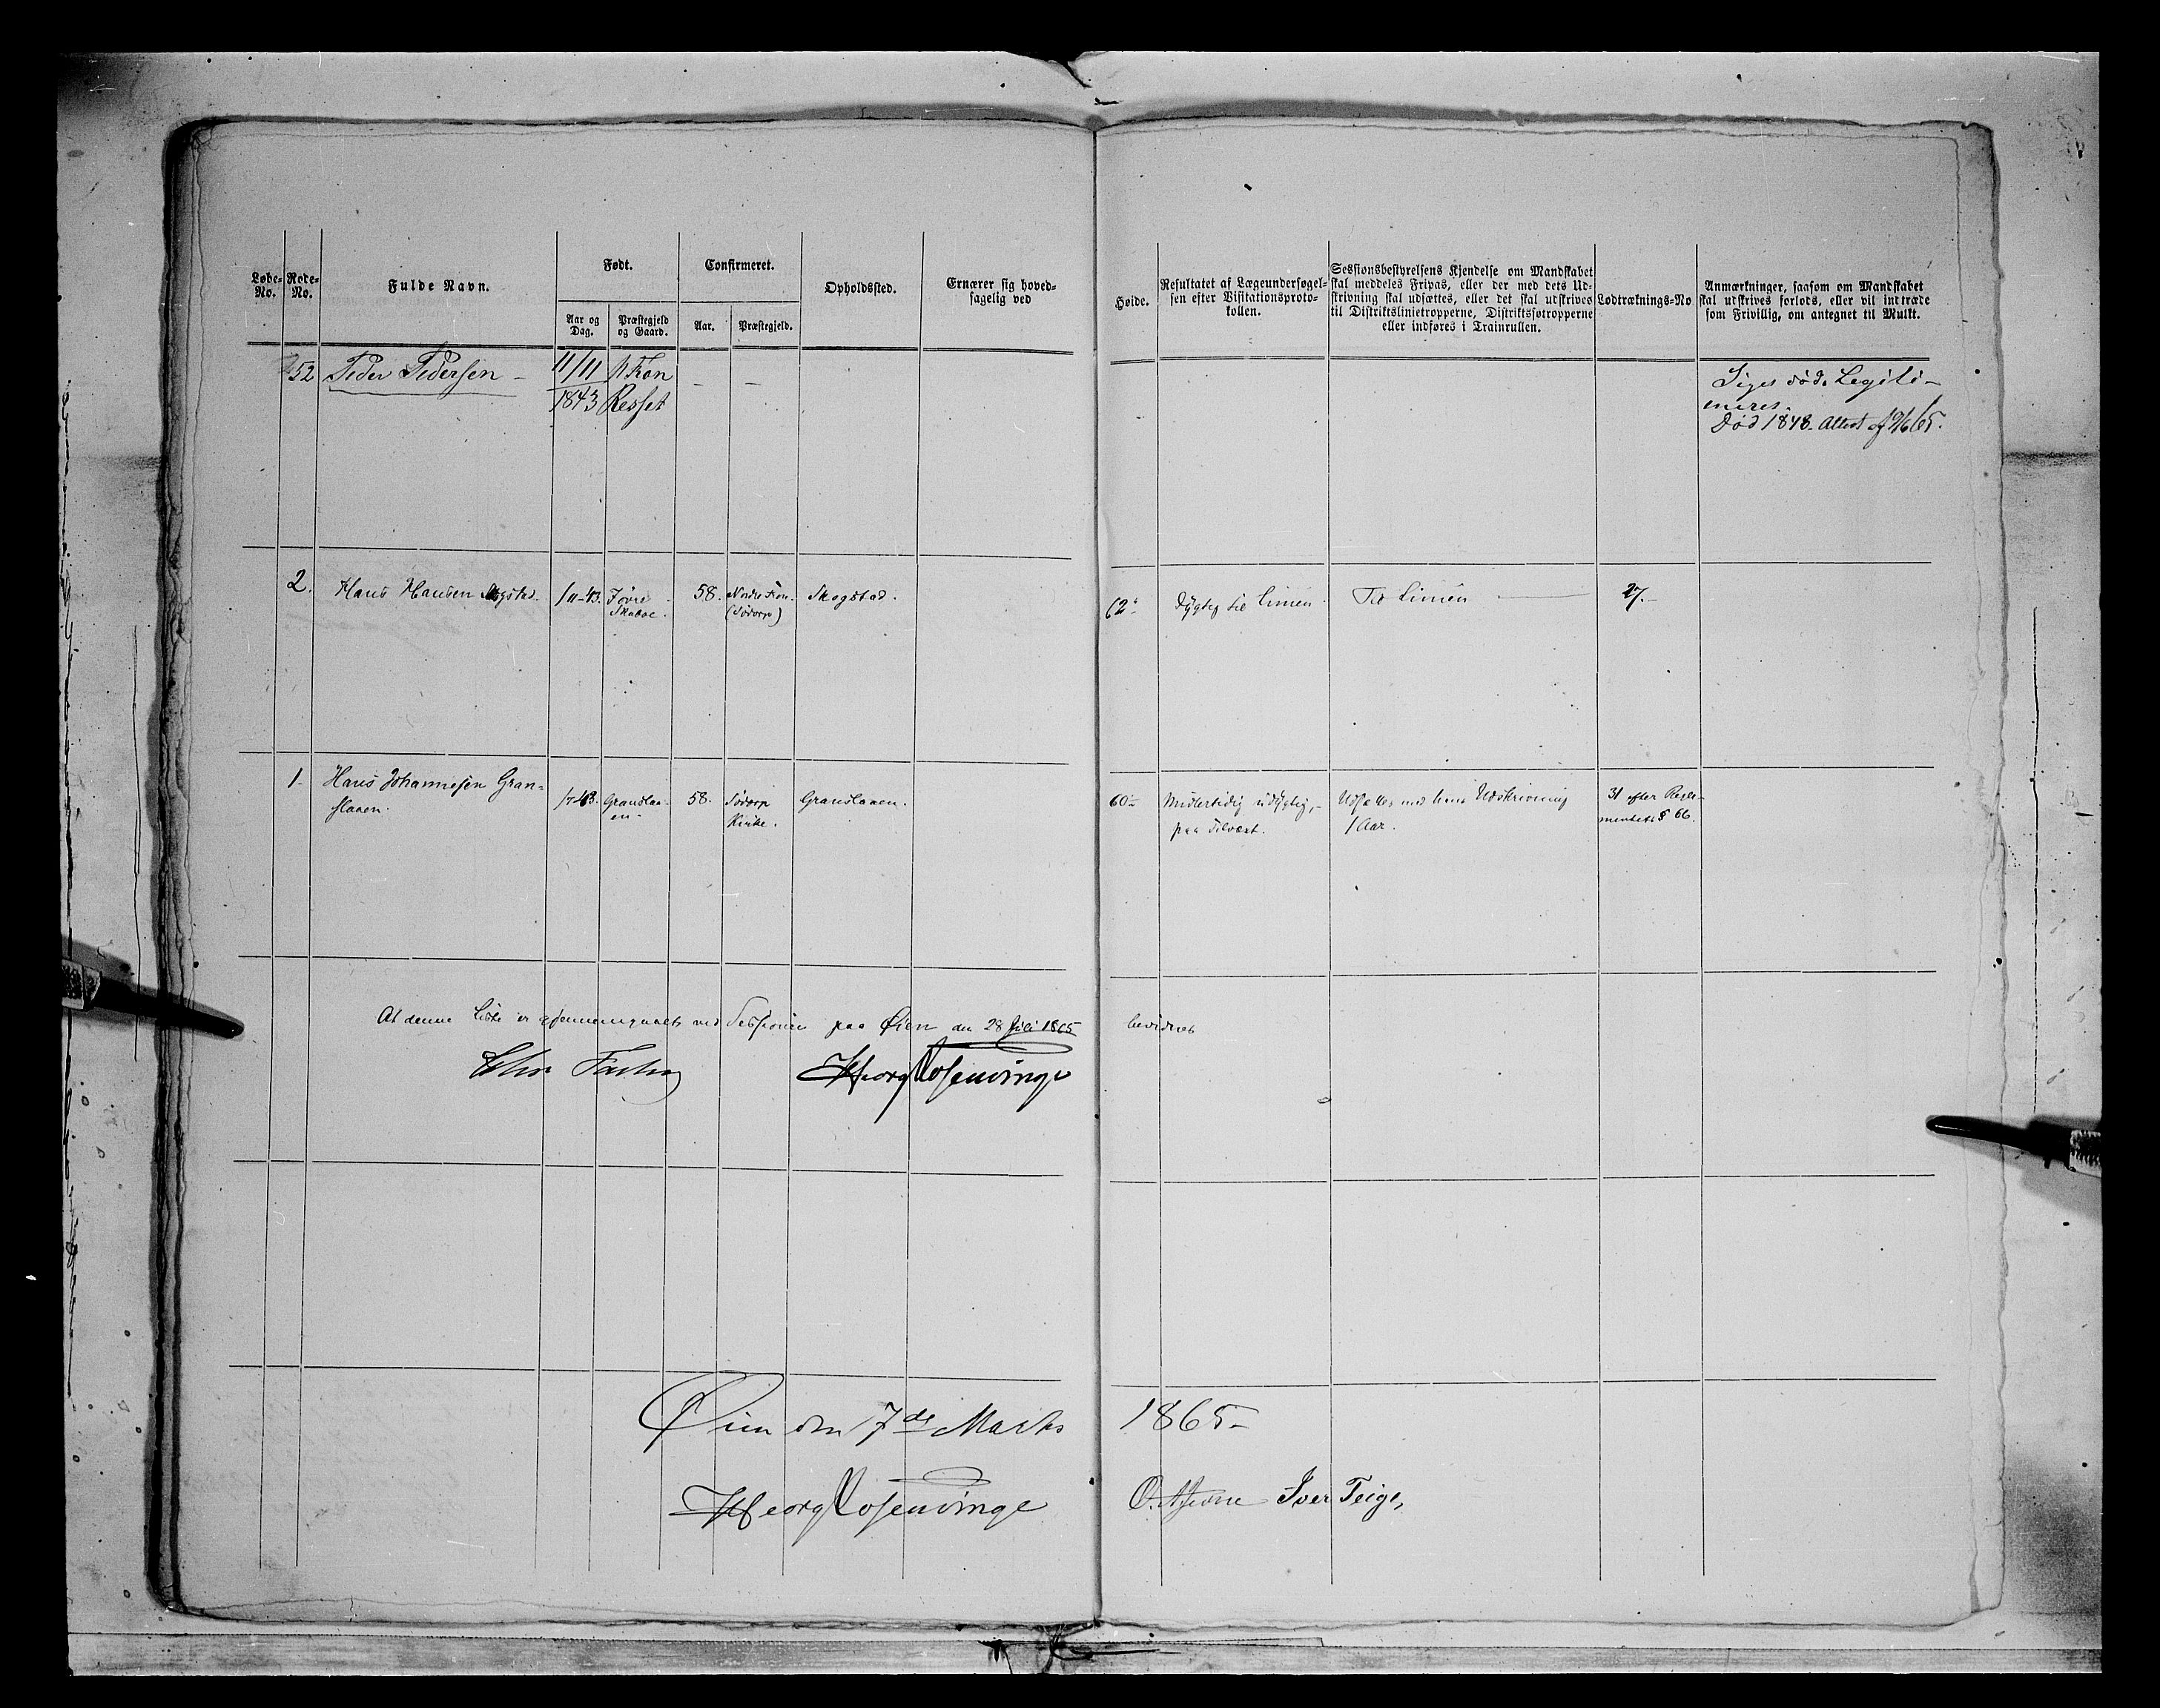 Løbe-No.
Rode-No.
Fulde Navn.
Født.
Aar og Dag.
Præstegjeld og Gaard.
Confirmeret.
Aar.
Præstegjeld.
Opholdssted.
Ernærer sig hoved-
sagelig ved
Høide.
Resultatet af Lægeundersøgel-
sen efter Visitationsproto-
kollen.
Sessionsbestyrelsens Kjendelse om Mandskabet
skal meddeles Fripas, eller der med dets Ud-
skrivning skal udsættes, eller det skal udskrives
til Distriktslinietropperne, Distriktsfotropperne
eller indføres i Trainrullen.
Lodtræknings-No
Anmærkninger, saasom om Mandskabet
skal udskrives forlods, eller vil indtræde
som Frivillig, om antegnet til Mulkt.
52 Peder Pedersen - 11/11 N Fron - -
1843 Resset
Siges död. Legiti-
meres.
Död 1848. Attest af 9/6 65.
2. Hans Hansen 1/11-43. Jövre Skaboe. 58. Nordre Fron. (Södorp) Skogstad.
62" Dygtig til Linien. Til Linien 27.-
1. Hans Johannesen Gran-
slaaen. 1/7-43. Granslaa-
en. 58. Södorp Kirke. Granslaaen.
60"- Midlertidig udygtig,-
paa Tilvæxt. Udsættes med hans Udskrivning
1 Aar. 31 efter Regle-
mentets § 66.
At denne Liste er gjennemgaaet ved Sessionen paa Öien den 28 Juli 1865 bevidnes
Georg Rosenvinge
Öien den 7de Marts 1865-
Georg Rosenvinge
Iver Teige,